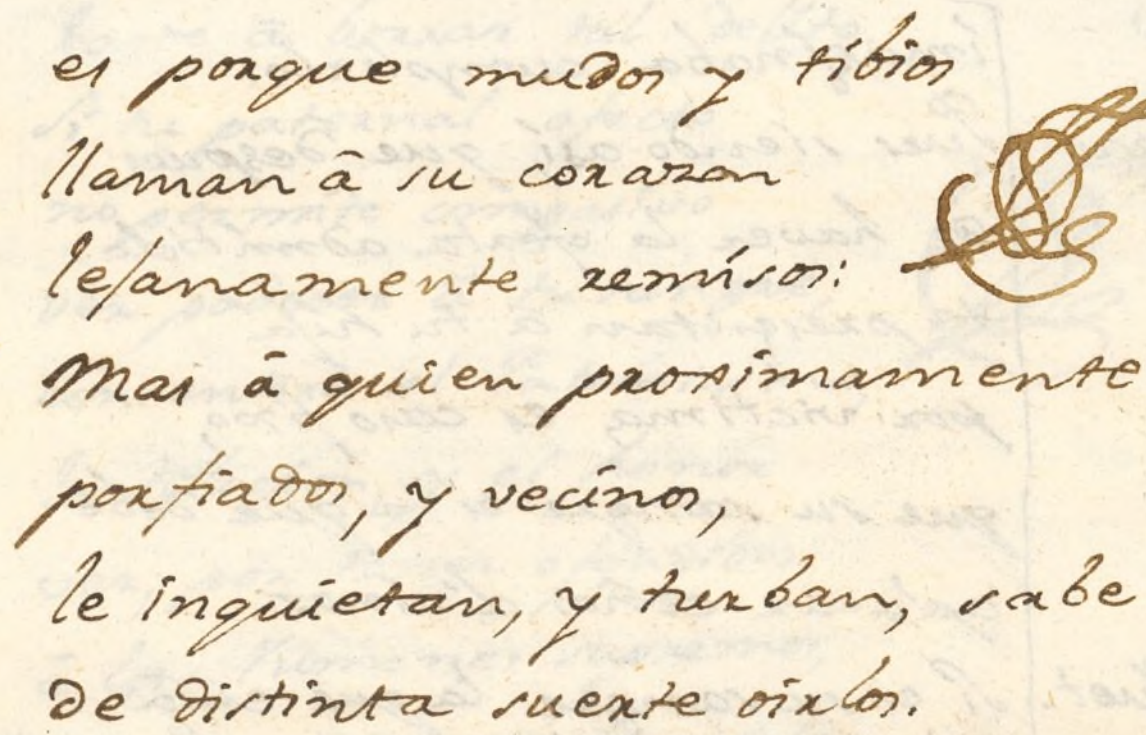 es porque mudos y tibios
llaman â su corazon
lejanamente remisos:
Mas â quien proximamente
porfiados, y vecinos,
le inquietan, y turban, sabe
de distinta suerte oirlos.